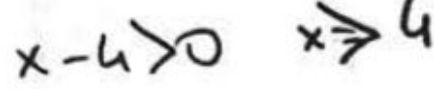 x-4>0 x⩾4